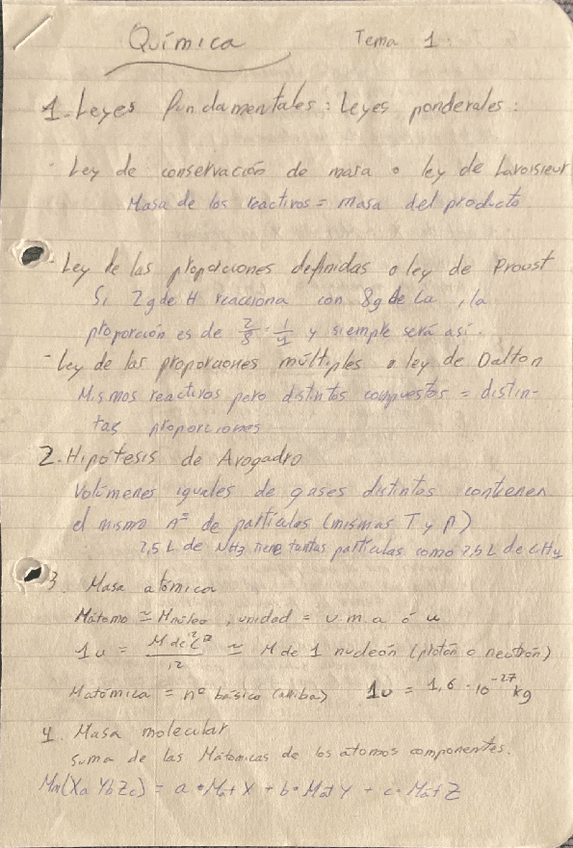 Química Tema 1
1. Leyes fundamentales: Leyes ponderales:
- Ley de conservación de masa o ley de Lavoisieur
Masa de los reactivos = masa del producto
- Ley de las proporciones definidas o ley de Proust
Si 2g de H reacciona con 8g de Ca, la
proporción es de 2/8 = 1/4 y siempre será así.
- Ley de las proporciones múltiples o ley de Dalton
Mismos reactivos pero distintos compuestos = distin-
tas proporciones
2. Hipótesis de Avogadro
Volúmenes iguales de gases distintos contienen
el mismo nº de partículas (mismas T y P)
2,5 L de NH3 tiene tantas partículas como 2,5 L de CH4
3. Masa atómica
Mátomo ≃ Mnúcleo, unidad = u.m.a ó u
1u = M de C / 12 ≃ M de 1 nucleón (protón o neutrón)
Matómica = nº básico (arriba) 1u = 1,6 · 10⁻²⁷ kg
4. Masa molecular
suma de las Matómicas de los atomos componentes.
Mm(Xa Yb Zc) = a · Mat X + b · Mat Y + c · Mat Z